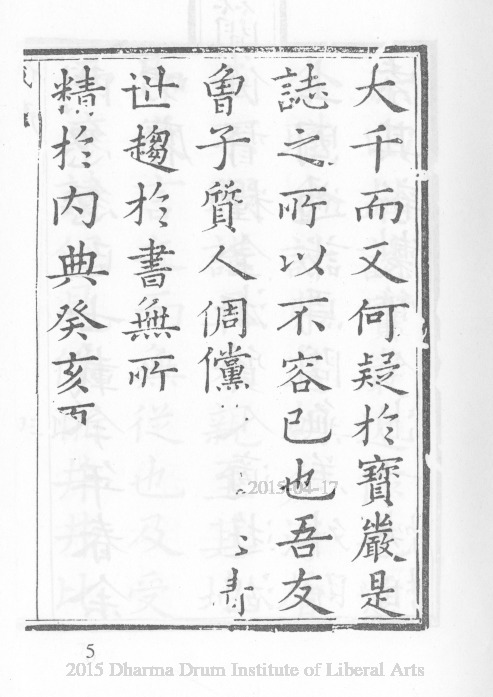 大千而又何疑於寶巖是
誌之所以不容已也吾友
曾子質人倜儻
世趨於書無所
精於內典癸亥
2015-04-17
5
2015 Dharma Drum Institute of Liberal Arts